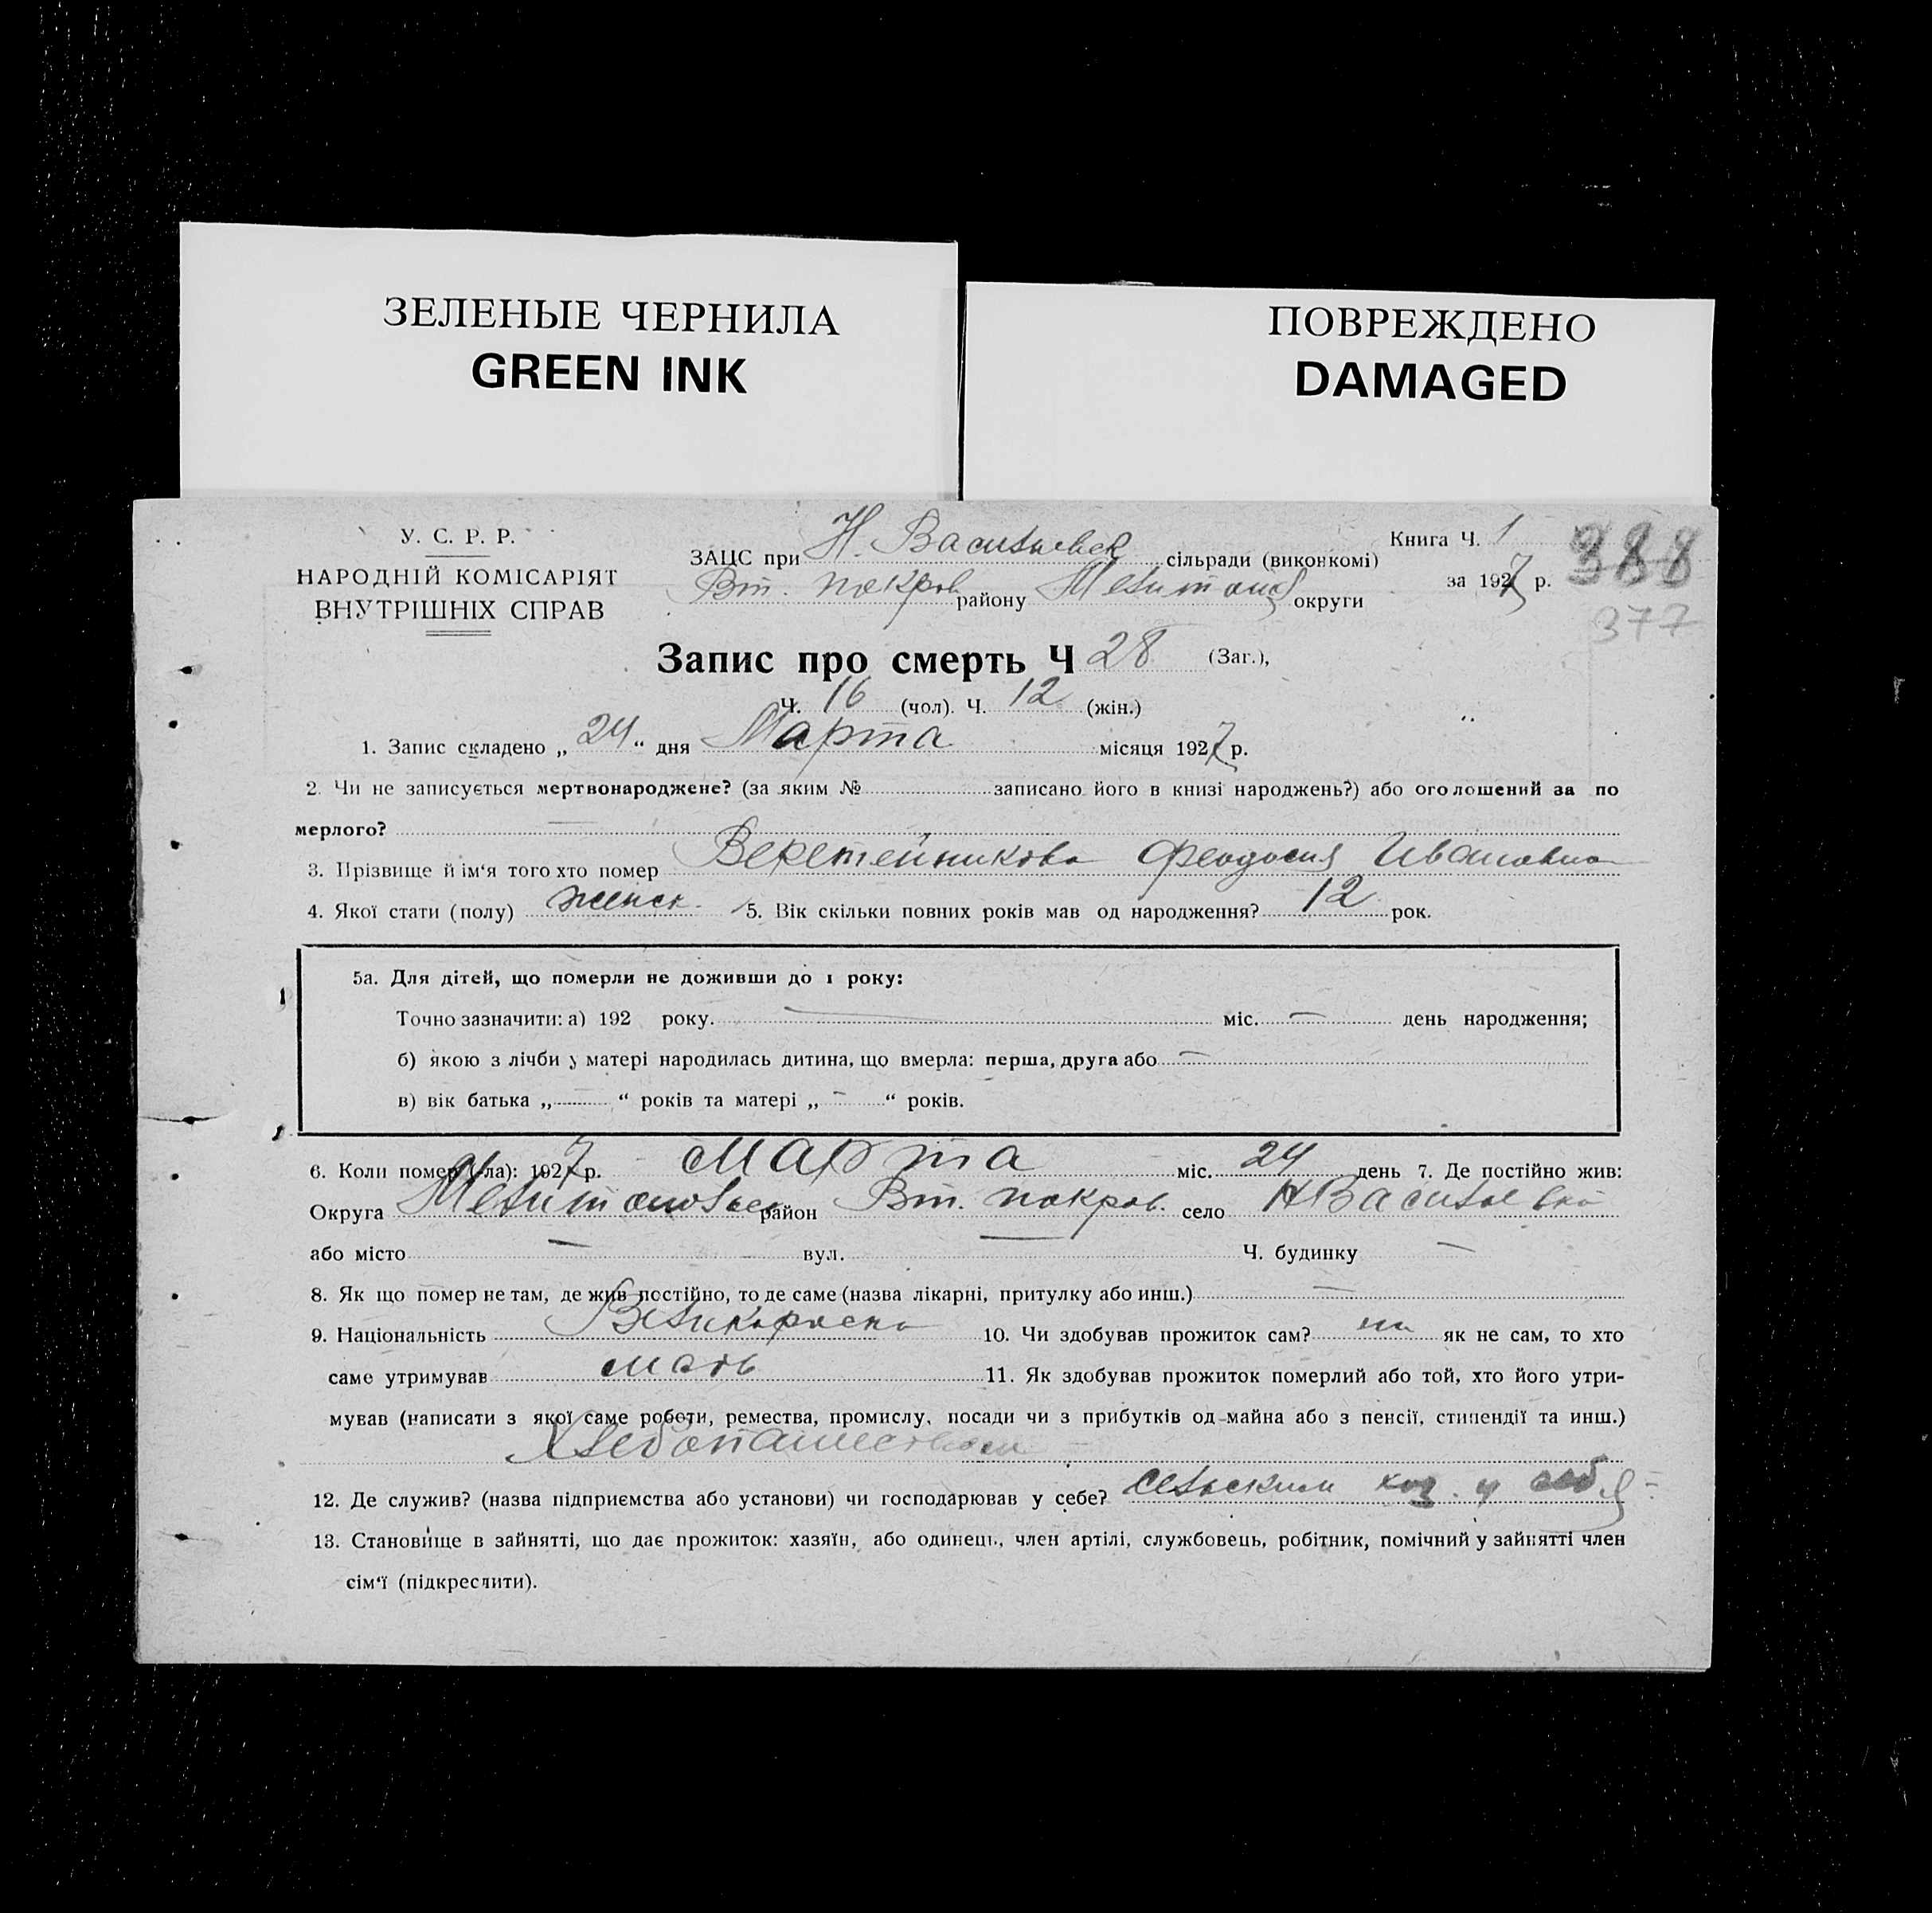 ЗЕЛЕНЫЕ ЧЕРНИЛА
GREEN INK
ПОВРЕЖДЕНО
DAMAGED
У. С. Р. Р.
НАРОДНІЙ КОМІСАРІЯТ
ВНУТРІШНІХ СПРАВ
ЗАЦС при Н. Васильевск сільради (виконкомі)
Вт. покров району Мелитоп округи
Книга Ч. 1
за 1927 р.
388
377
Запис про смерть Ч 28 (Заг.),
Ч. 16 (чол). Ч. 12 (жін.)
1. Запис складено „ 24 “ дня Марта місяця 1927 р.
2. Чи не записується мертвонароджене? (за яким № записано його в книзі народжень?) або оголошений за по
мерлого? —
3. Прізвище й ім‘я того хто помер Веретенникова Феодосия Ивановна
4. Якої стати (полу) женск. 5. Вік скільки повних років мав од народження? 12 рок.
5а. Для дітей, що померли не доживши до 1 року:
Точно зазначити: а) 192 року. — міс. — день народження;
б) якою з лічби у матері народилась дитина, що вмерла: перша, друга або —
в) вік батька „ “ років та матері „ - “ років.
6. Коли помер (-ла): 1927 р. Марта міс. 24 день 7. Де постійно жив:
Округа Мелитопольск район Вт. покров. село НВасильевка
або місто — вул. — Ч. будинку —
8. Як що помер не там, де жив постійно, то де саме (назва лікарні, притулку або инш.) —
9. Національність Великоросска 10. Чи здобував прожиток сам? як не сам, то хто
саме утримував мать 11. Як здобував прожиток померлий або той, хто його утри-
мував (написати з якої саме роботи, ремества, промислу, посади чи з прибутків од майна або з пенсії, стипендії та инш.)
Хлебопашеством
12. Де служив? (назва підприємства або установи) чи господарював у себе? сельским хоз. у себя
13. Становище в зайнятті, що дає прожиток: хазяїн, або одинець, член артілі, службовець, робітник, помічний у зайнятті член
сім‘ї (підкреслити).